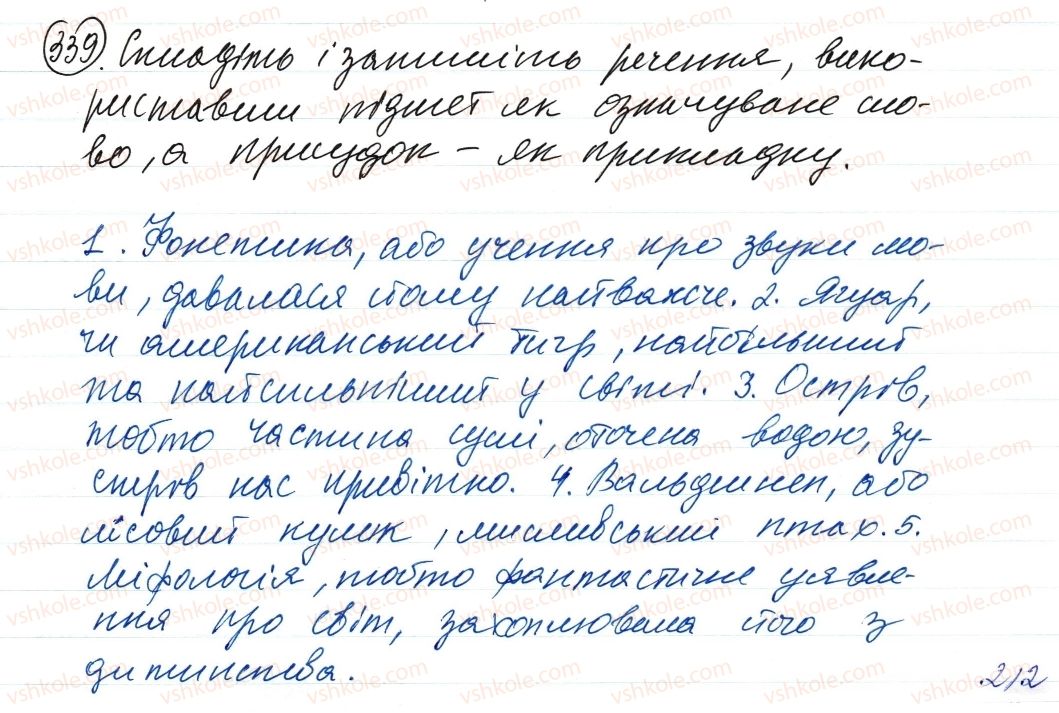 339. Складіть і запишіть речення, вико-
риставши підмет як означуване сло-
во, а присудок – як прикладку.
1. Фонетика, або учення про звуки мо-
ви, давалася йому найважче. 2. Ягуар,
чи американський тигр, найбільший
та найсильніший у світі. 3. Острів,
тобто частина суші, оточена водою, зу-
стрів нас привітно. 4. Вальдшнеп, або
лісовий кулик, мисливський птах. 5.
Міфологія, тобто фантастичне уявле-
ння про світ, захоплювала його з
дитинства.
212